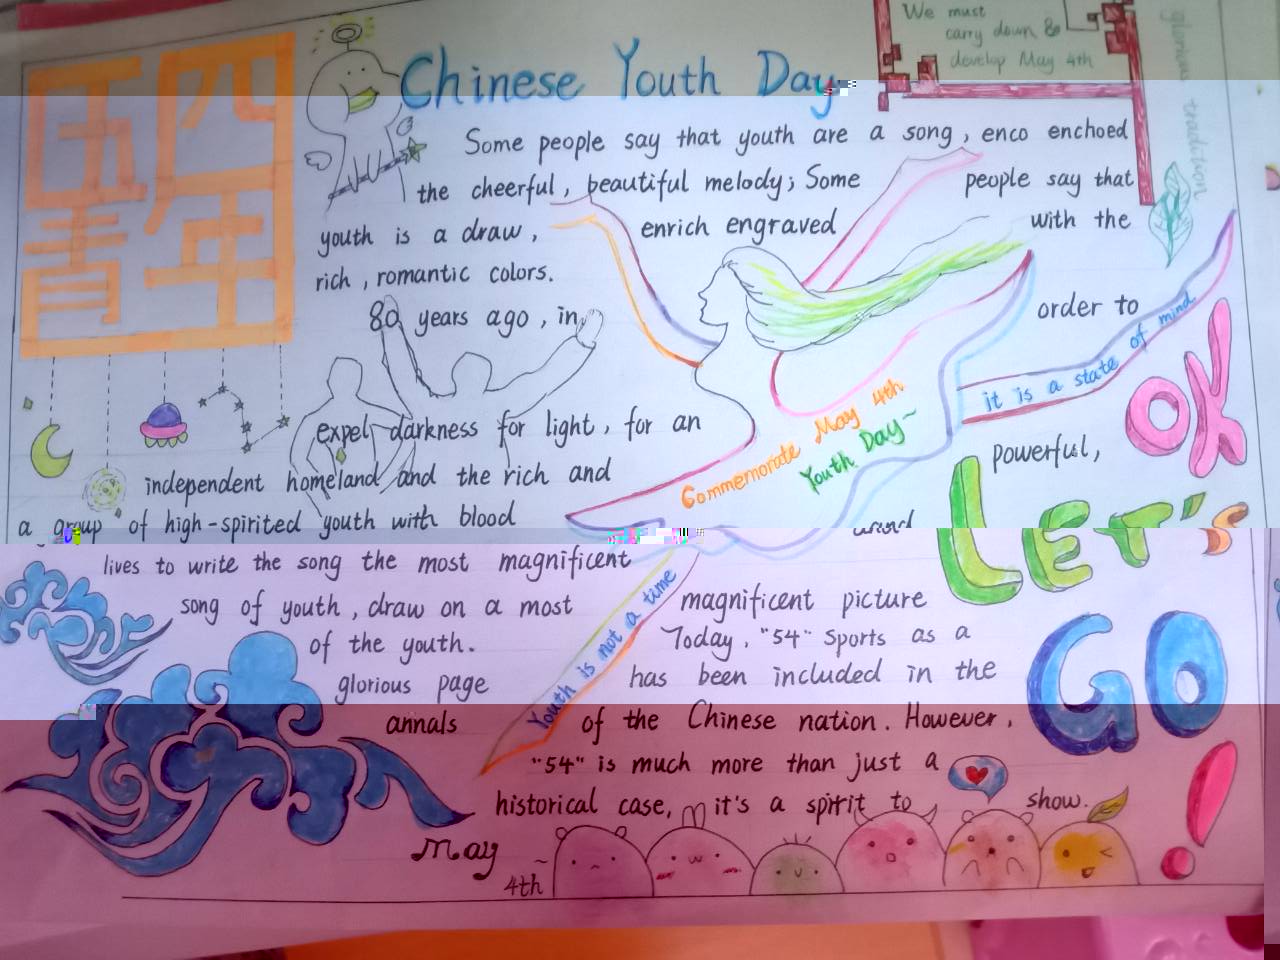 五四
青年
Chinese Youth Day
We must
carry down &
develop May 4th
glorious tradition
Some people say that youth are a song, enco enchoed
the cheerful, beautiful melody; Some people say that
youth is a draw, enrich engraved with the
rich, romantic colors.
80 years ago, in order to
expel darkness for light, for an powerful,
independent homeland and the rich and
a group of high-spirited youth with blood and
lives to write the song the most magnificent
song of youth, draw on a most magnificent picture
of the youth. Today, "54" sports as a
glorious page has been included in the
annals of the Chinese nation. However,
"54" is much more than just a
historical case, it's a spirit to show.
Commemorate May 4th
Youth Day~
Youth is not a time
it is a state of mind
OK
LET's
GO
!
May
~
4th